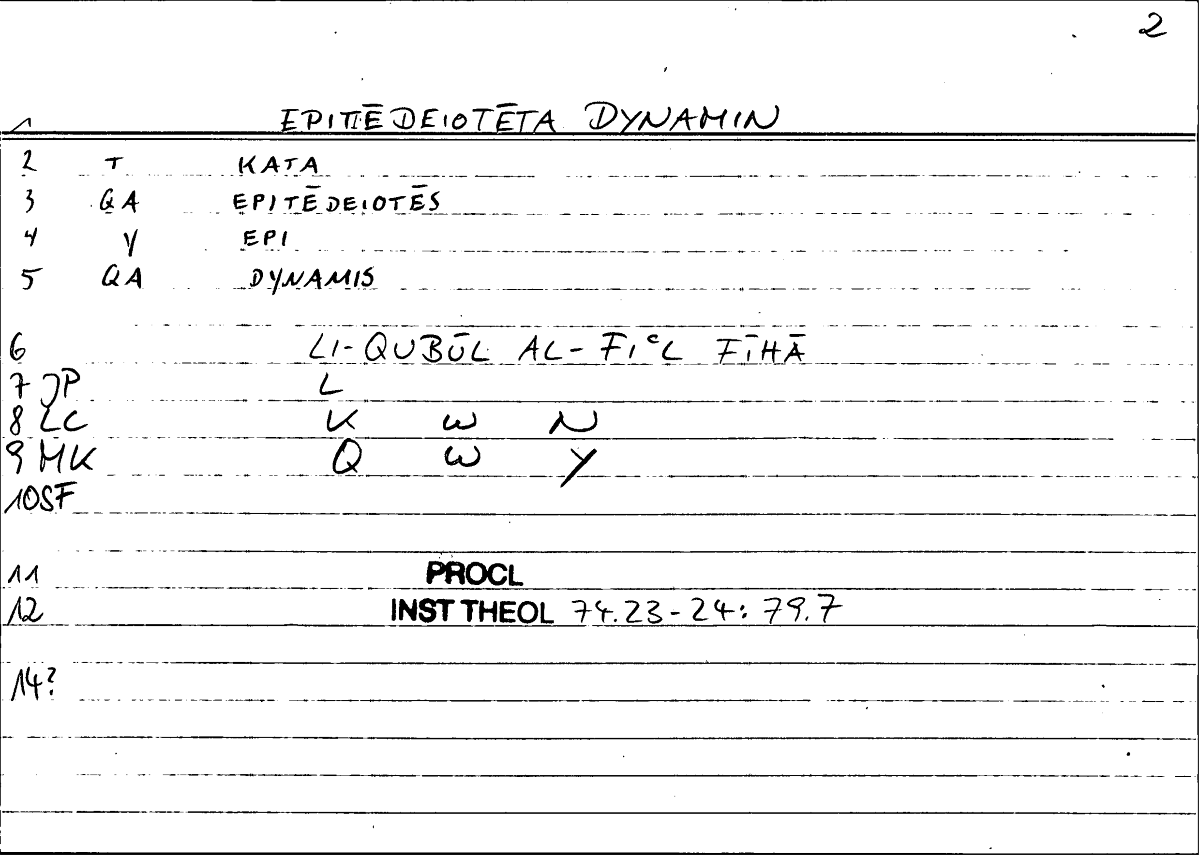 2
1 EPITĒDEIOTĒTA DYNAMIN
2 T KATA
3 QA EPITĒDEIOTĒS
4 Y EPI
5 QA DYNAMIS
6 LI-QUBŪL AL-FIʿL FĪHĀ
7 JP L
8 LC K W N
9 MK Q W Y
10 SF
11 PROCL
12 INST THEOL 74.23-24: 79.7
14?